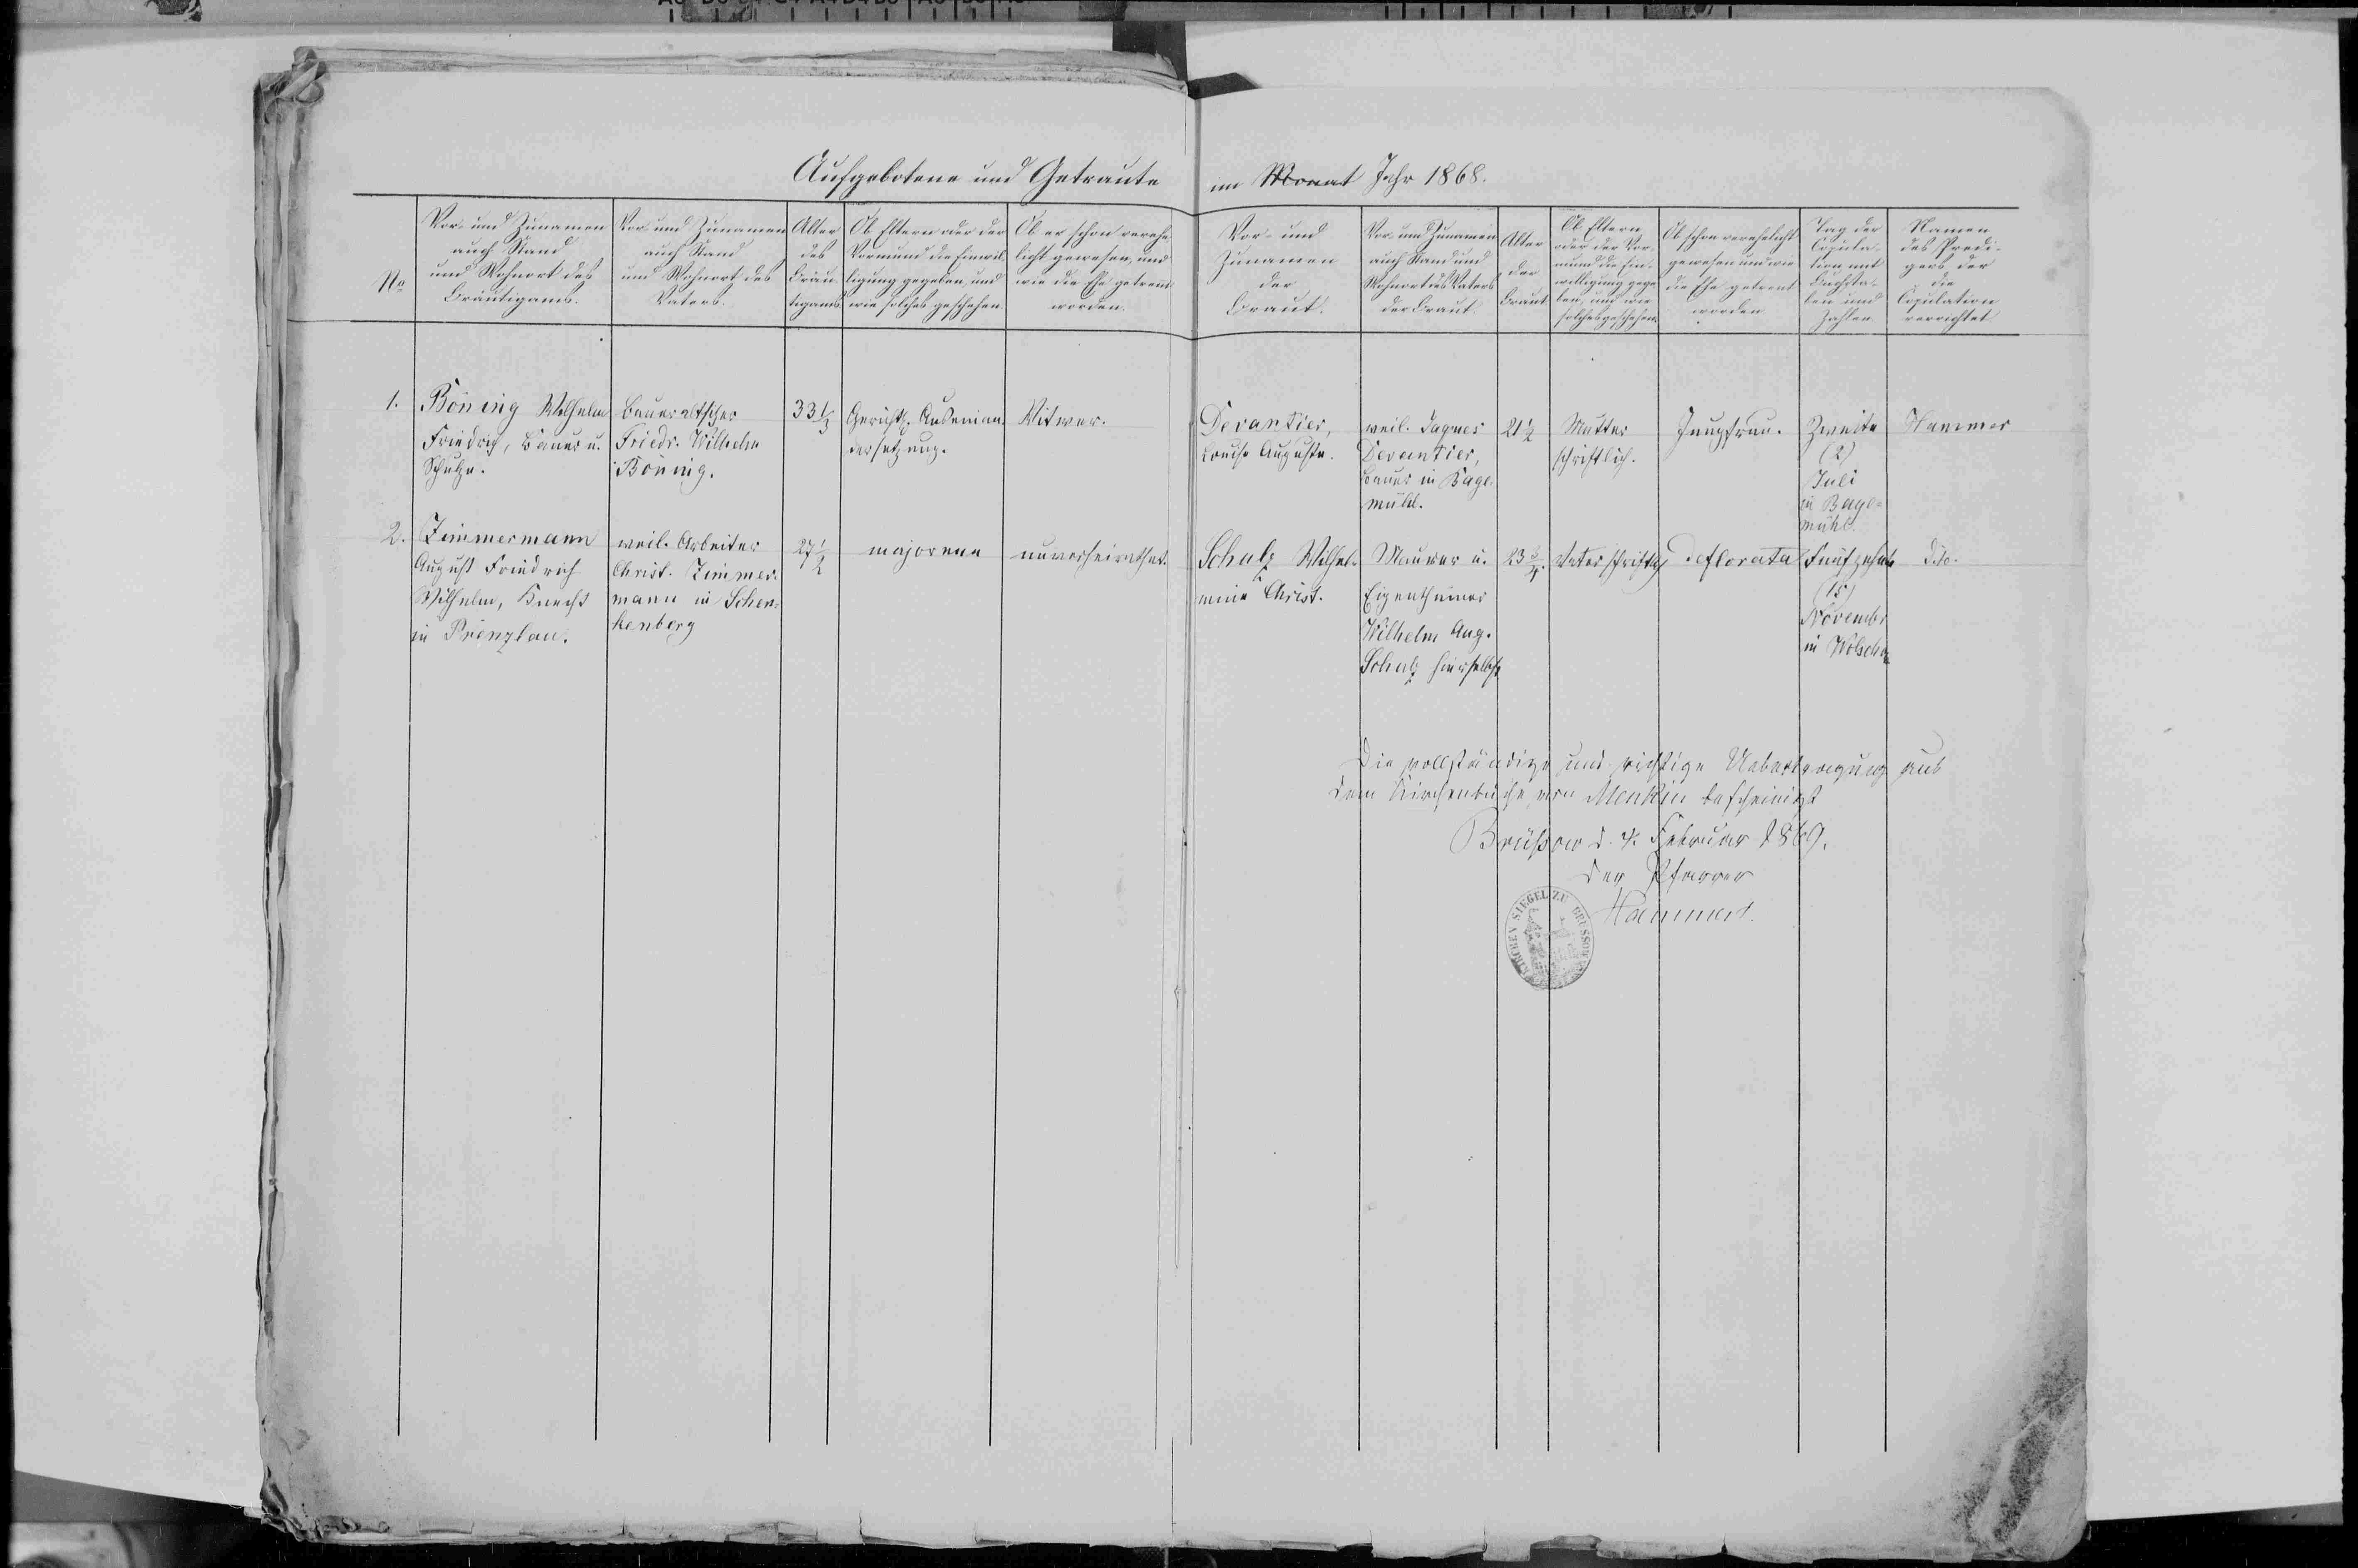 Aufgebotene und Getraute im Monat Jahr 1868.
No
Vor- und Zunamen
auch Stand
und Wohnort des
Bräutigams.
Vor- und Zunamen
auch Stand
und Wohnort des
Vaters.
Alter
des
Bräu-
tigams
Ob Eltern oder der
Vormund die Einwil-
ligung gegeben, und
wie solches geschehen.
Ob er schon verehe-
licht gewesen, und
wie die Ehe getrennt
worden.
Vor- und
Zunamen
der
Braut.
Vor- und Zunamen
auch Stand und
Wohnort des Vaters
der Braut.
Alter
der
Braut
Ob Eltern
oder der Vor-
mund die Ein-
willigung gege-
ben, und wie
solches geschehen.
Ob schon verehelicht
gewesen und wie
die Ehe getrennt
worden
Tag der
Copula-
tion mit
Buchsta-
ben und
Zahlen
Namen
des Predi-
gers der
die
Copulation
verrichtet
1.
Böning Wilhelm
Friedrich, Bauer u.
Schulze.
Bauer
Friedr. Wilhelm
Böning.
33 1/3
Gerichtl. Auseinan-
dersetzung.
Witwer.
Devantier,
Louise Auguste.
weil. Jaques
Devantier,
Bauer in Bage-
mühl.
21 1/2
Mutter
schriftlich.
Jungfrau.
Zweite
(2)
Juli
in Bage-
mühl.
Hammer
2.
Zimmermann
August Friedrich
Wilhelm, Knecht
in Prenzlau.
weil. Arbeiter
Christ. Zimmer-
mann in Schen-
kenberg
27 1/2
majorenn
unverheirathet.
Schulz Wilhel-
mine Christ.
Maurer u.
Eigenthümer
Wilhelm Aug.
Schulz hierselbst
23 3/4.
Vater schriftlich
deflorata
Fünfzehnte
(15)
Novembr
in
dito.
Die vollständige und richtige Uebertragung aus
dem Kirchenbuche von Menkin bescheinigt
Brüssow d. 4. Februar 1869.
Der Pfarrer
Hammer.
KIRCHEN SIEGEL ZU BRÜSSOW